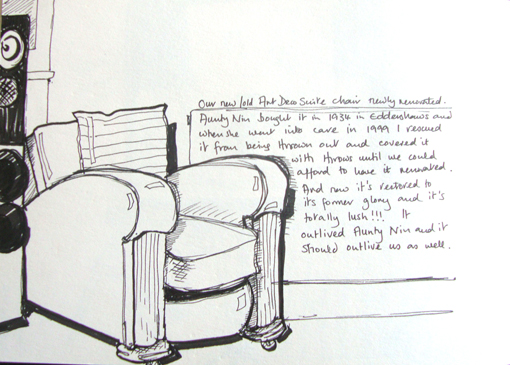 Our new/old Art Deco Suite chair newly renovated.
Aunty Nin bought it in 1934 in Eddershaws and
when she went into care in 1999 I rescued
it from being thrown out and covered it
with throws until we could
afford to have it renovated.
And now it's restored to
its former glory and it's
totally lush!!! It
outlived Aunty Nin and it
should outlive us as well.